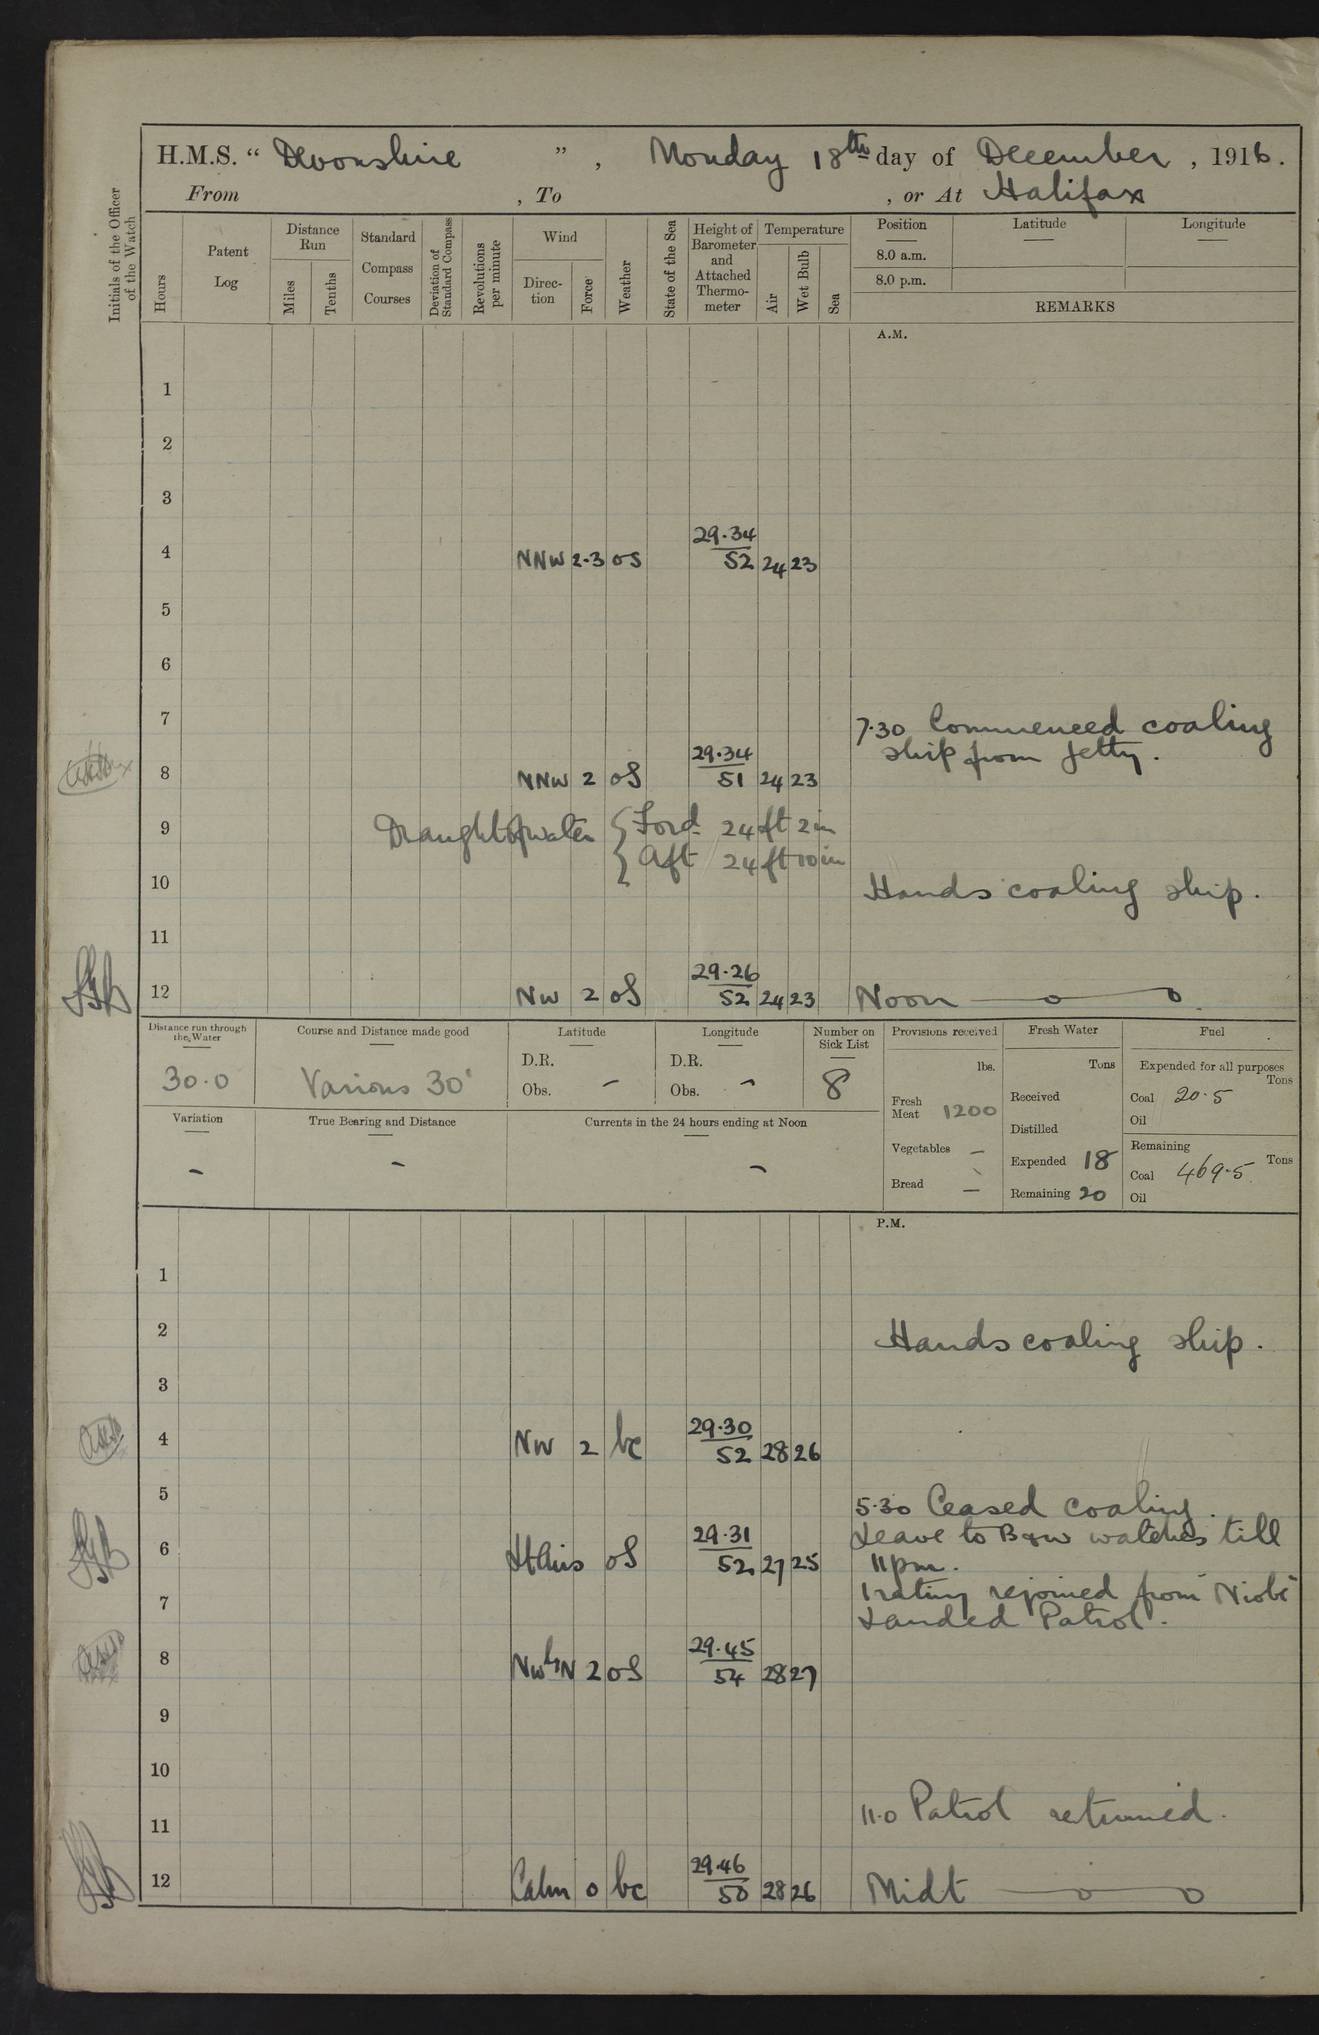 H.M.S. “ Devonshire ” , Monday 18th day of December , 1916.
From , To , or At Halifax
Initials of the Officer of the Watch
Hours
Patent Log
Distance Run
Miles
Tenths
Standard Compass Courses
Deviation of Standard Compass
Revolutions per minute
Wind
Direc-tion
Force
Weather
State of the Sea
Height of Barometer and Attached Thermo-meter
Temperature
Air
Wet Bulb
Sea
Position
8.0 a.m.
8.0 p.m.
Latitude
Longitude
REMARKS
A.M.
1
2
3
4 NNW 2.3 os 29.34 52 24 23
5
6
7 7.30 Commenced coaling
ship from Jetty.
8 NNW 2 os 29.34 51 24 23
9 Draught of water { Ford 24 ft 2 in
{ Aft 24 ft 10 in
10 Hands coaling ship.
11
12 NW 2 os 29.26 52 24 23 Noon
Distance run through the Water
30.0
Course and Distance made good
Various 30'
Latitude
D.R.
Obs. –
Longitude
D.R.
Obs. –
Number on Sick List
8
Provisions received
lbs.
Fresh Meat 1200
Vegetables –
Bread –
Fresh Water
Tons
Received
Distilled
Expended 18
Remaining 20
Fuel
Expended for all purposes
Tons
Coal 20.5
Oil
Remaining
Tons
Coal 469.5
Oil
Variation
–
True Bearing and Distance
–
Currents in the 24 hours ending at Noon
–
P.M.
1
2 Hands coaling ship.
3
4 NW 2 bc 29.30 52 28 26
5 5.30 Ceased coaling.
Leave to B&W watches till
6 Lt Airs os 29.31 52 27 25 11pm.
1 rating rejoined from "Niobe"
7 Landed Patrol.
8 NW by N 2 os 29.45 54 28 27
9
10
11.0 Patrol returned.
11
12 Calm 0 bc 29.46 50 28 26 Midt